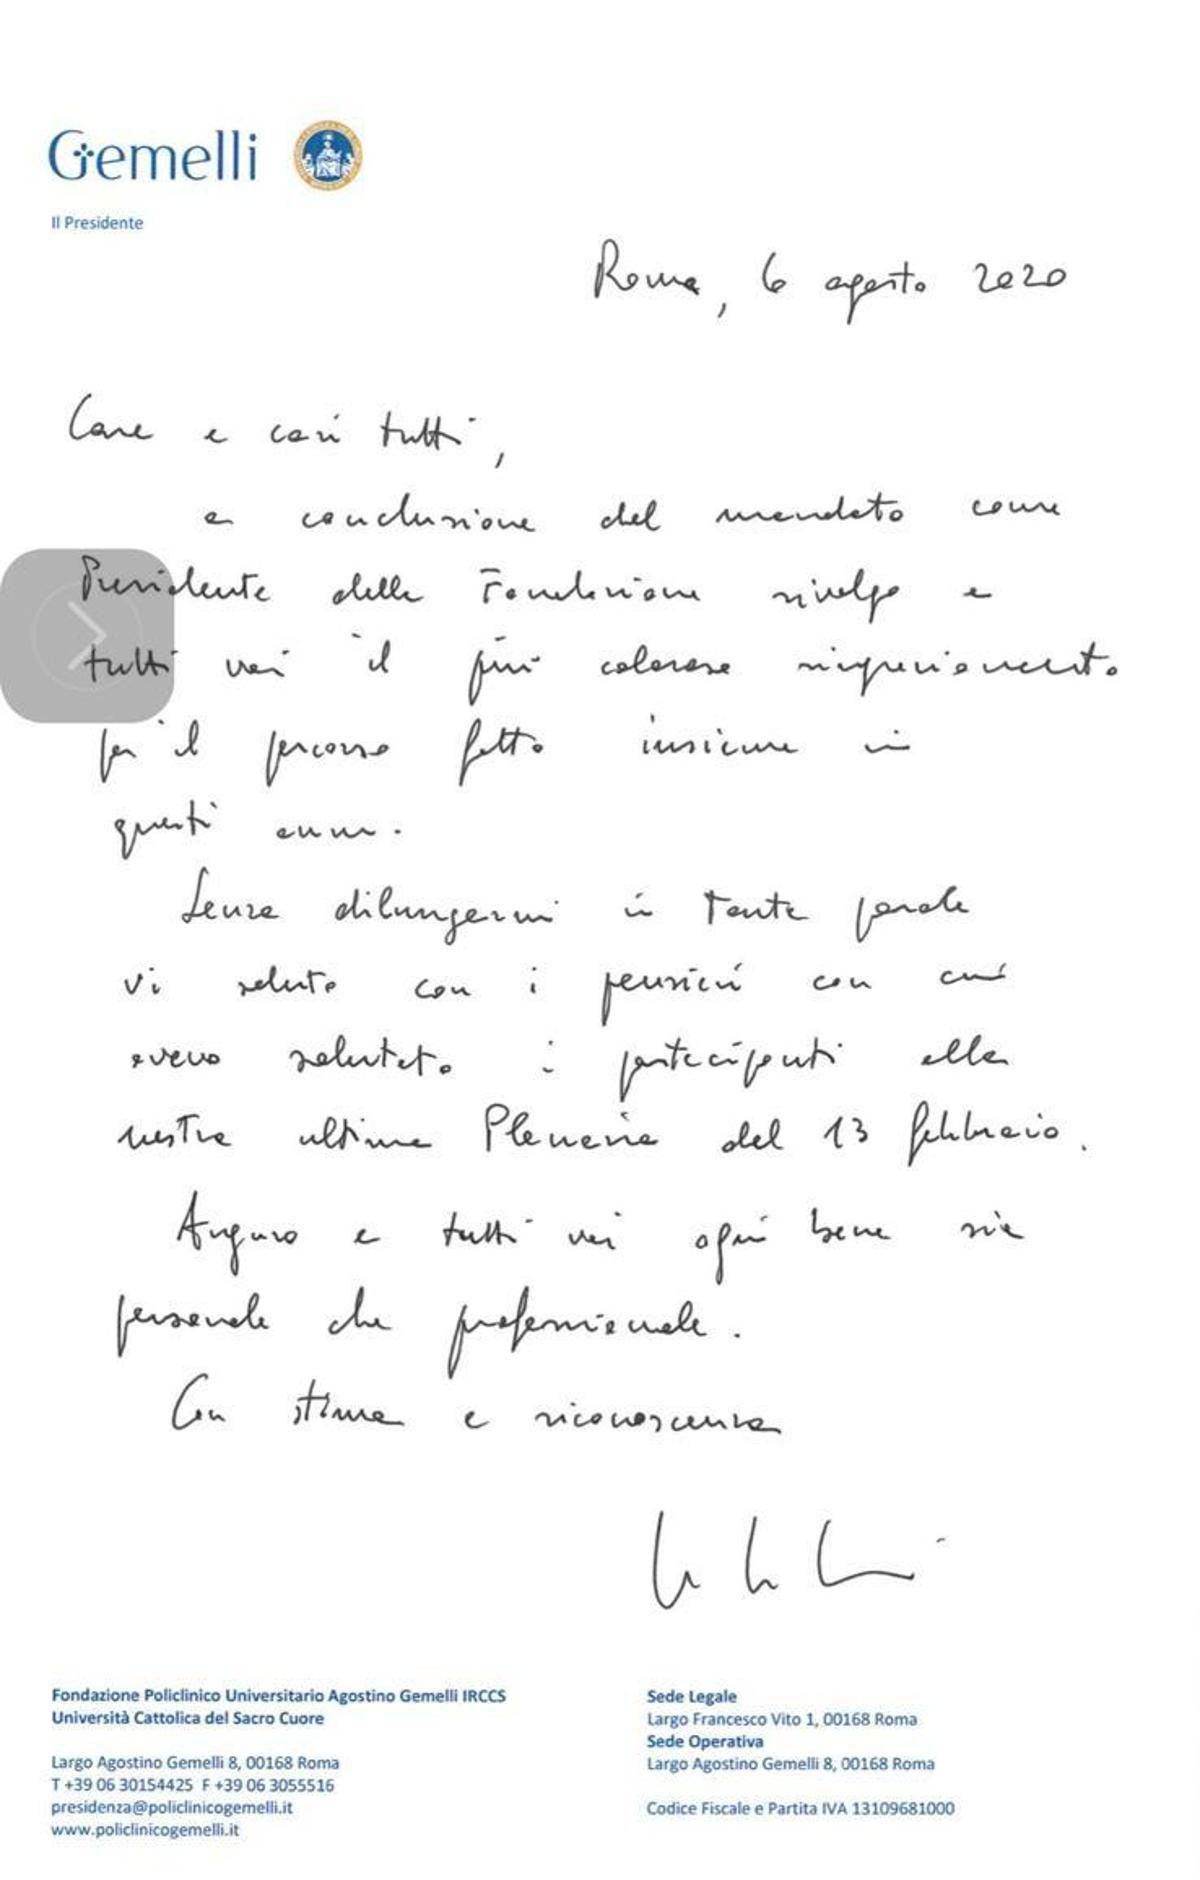 Gemelli
Il Presidente
Roma, 6 agosto 2020
Care e cari tutti,
a conclusione del mandato come
Presidente della Fondazione rivolgo a
tutti voi il più caloroso ringraziamento
per il percorso fatto insieme in
questi anni.
Senza dilungarmi in tante parole
vi saluto con i pensieri con cui
avevo salutato i partecipanti alla
nostra ultima Plenaria del 13 febbraio.
Auguro a tutti voi ogni bene sia
personale che professionale.
Con stima e riconoscenza
Fondazione Policlinico Universitario Agostino Gemelli IRCCS
Università Cattolica del Sacro Cuore
Largo Agostino Gemelli 8, 00168 Roma
T +39 06 30154425 F +39 06 3055516
presidenza@policlinicogemelli.it
www.policlinicogemelli.it
Sede Legale
Largo Francesco Vito 1, 00168 Roma
Sede Operativa
Largo Agostino Gemelli 8, 00168 Roma
Codice Fiscale e Partita IVA 13109681000